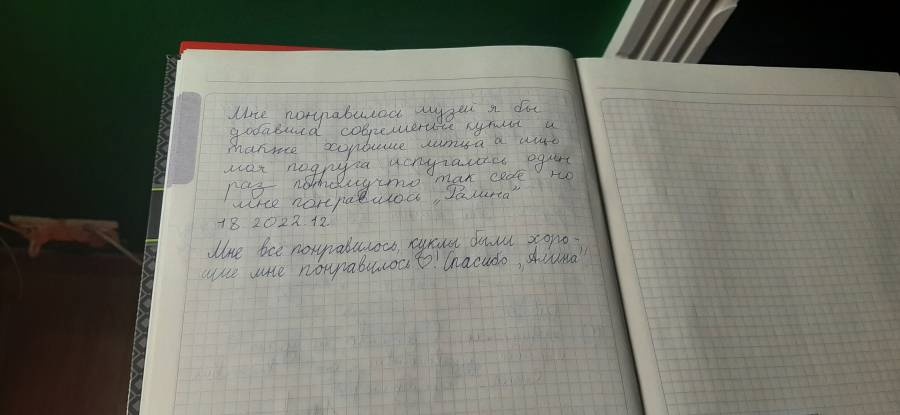 Мне понравилось музей я бы
добавила современые куклы и
также хорошие литца а ищо
моя подруга испугалась один
раз потомучто так себе но
мне понравилось „Ралина"
18.2022.12.
Мне все понравилось куклы были хоро-
шие мне понравилось ♡! Спасибо „Алина"